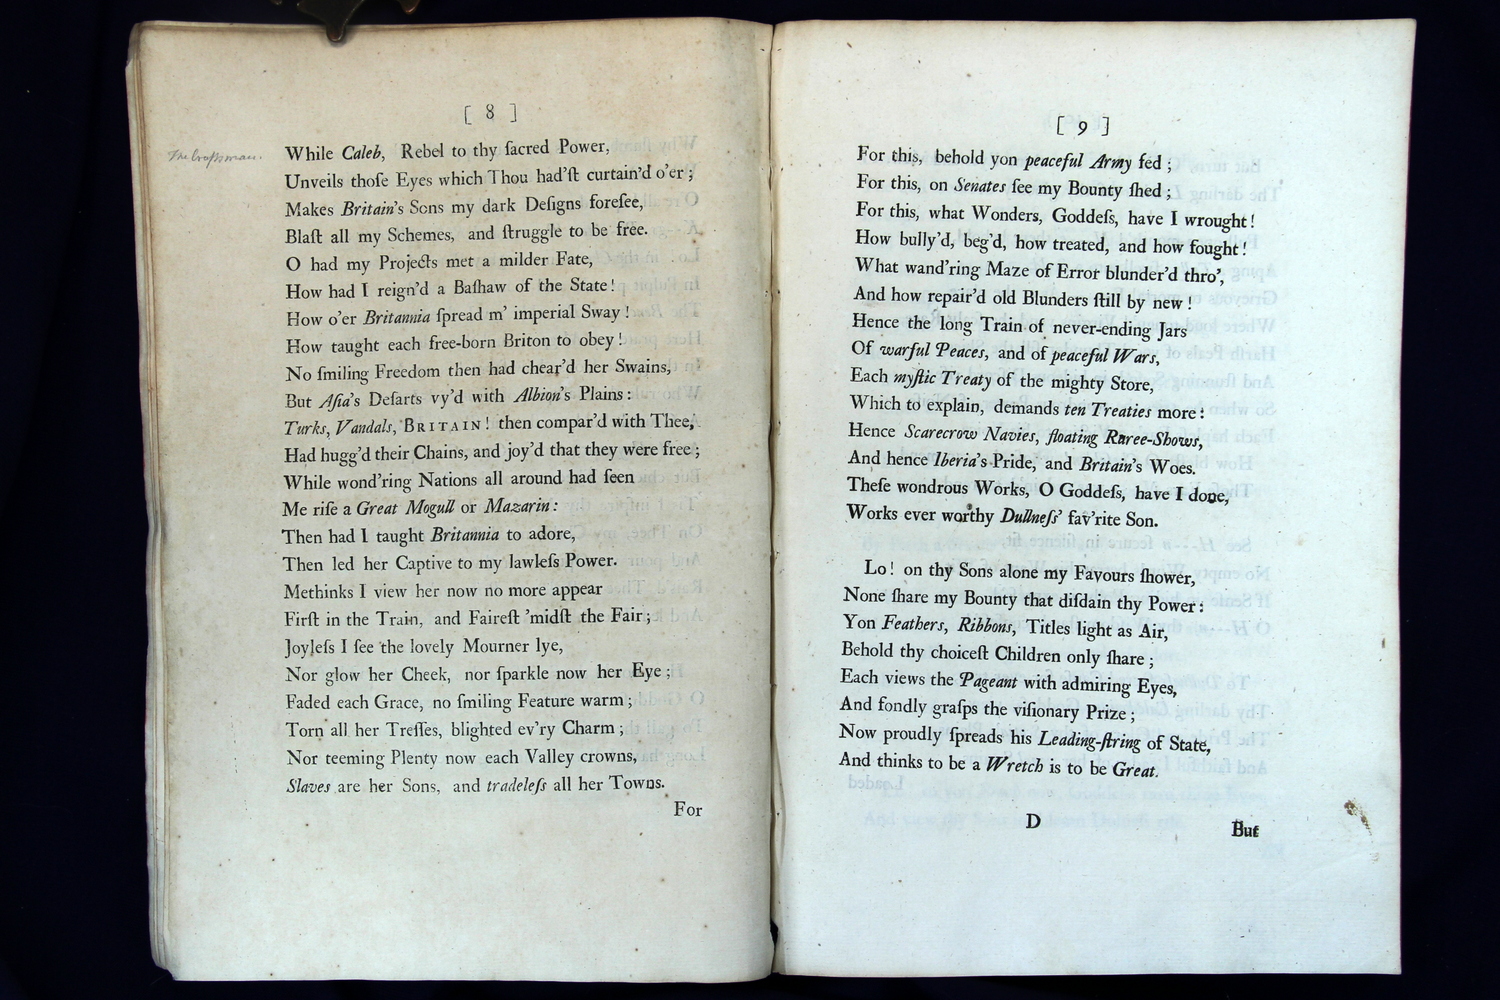 [ 8 ]
While Caleb, Rebel to thy ſacred Power,
Unveils thoſe Eyes which Thou had'ſt curtain'd o'er ;
Makes Britain's Sons my dark Deſigns foreſee,
Blaſt all my Schemes, and ſtruggle to be free.
O had my Projects met a milder Fate,
How had I reign'd a Baſhaw of the State !
How o'er Britannia ſpread m' imperial Sway !
How taught each free-born Briton to obey !
No ſmiling Freedom then had chear'd her Swains,
But Aſia's Deſarts vy'd with Albion's Plains :
Turks, Vandals, BRITAIN ! then compar'd with Thee,
Had hugg'd their Chains, and joy'd that they were free ;
While wond'ring Nations all around had ſeen
Me riſe a Great Mogull or Mazarin :
Then had I taught Britannia to adore,
Then led her Captive to my lawleſs Power.
Methinks I view her now no more appear
Firſt in the Train, and Faireſt 'midſt the Fair ;
Joyleſs I ſee the lovely Mourner lye,
Nor glow her Cheek, nor ſparkle now her Eye ;
Faded each Grace, no ſmiling Feature warm ;
Torn all her Treſſes, blighted ev'ry Charm ;
Nor teeming Plenty now each Valley crowns,
Slaves are her Sons, and tradeleſs all her Towns.
For
[ 9 ]
For this, behold yon peaceful Army fed ;
For this, on Senates ſee my Bounty ſhed ;
For this, what Wonders, Goddeſs, have I wrought !
How bully'd, beg'd, how treated, and how fought !
What wand'ring Maze of Error blunder'd thro',
And how repair'd old Blunders ſtill by new !
Hence the long Train of never-ending Jars
Of warful Peaces, and of peaceful Wars,
Each myſtic Treaty of the mighty Store,
Which to explain, demands ten Treaties more :
Hence Scarecrow Navies, floating Raree-Shows,
And hence Iberia's Pride, and Britain's Woes.
Theſe wondrous Works, O Goddeſs, have I done,
Works ever worthy Dullneſs' fav'rite Son.
Lo ! on thy Sons alone my Favours ſhower,
None ſhare my Bounty that diſdain thy Power :
Yon Feathers, Ribbons, Titles light as Air,
Behold thy choiceſt Children only ſhare ;
Each views the Pageant with admiring Eyes,
And fondly graſps the viſionary Prize ;
Now proudly ſpreads his Leading-ſtring of State,
And thinks to be a Wretch is to be Great.
D
But